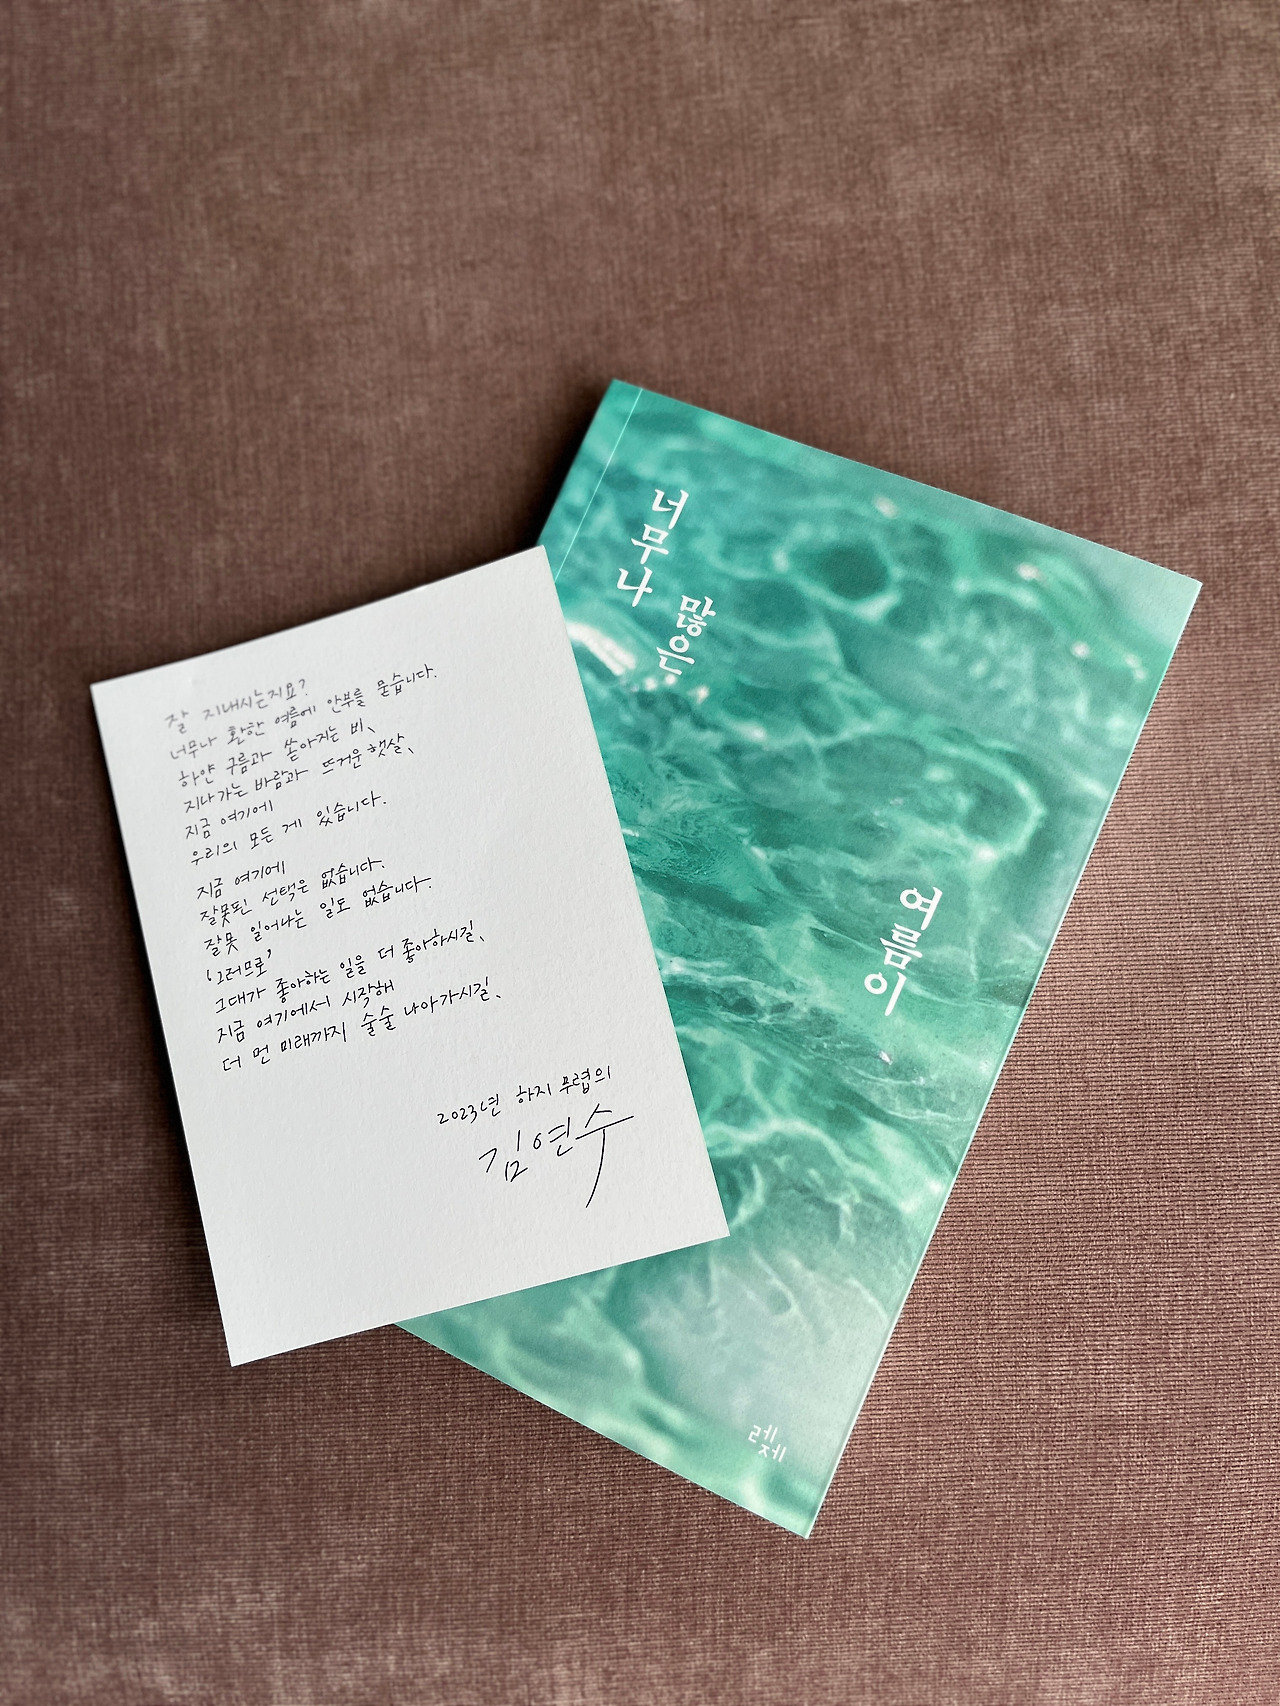 잘 지내시는지요?
너무나 환한 여름에 안부를 묻습니다.
하얀 구름과 쏟아지는 비,
지나가는 바람과 뜨거운 햇살,
지금 여기에
우리의 모든 게 있습니다.
지금 여기에
잘못된 선택은 없습니다.
잘못 일어나는 일도 없습니다.
'그러므로'
그대가 좋아하는 일을 더 좋아하시길,
지금 여기에서 시작해
더 먼 미래까지 술술 나아가시길,
2023년 하지 무렵의
김연수
너무나
많은
여름이
레제